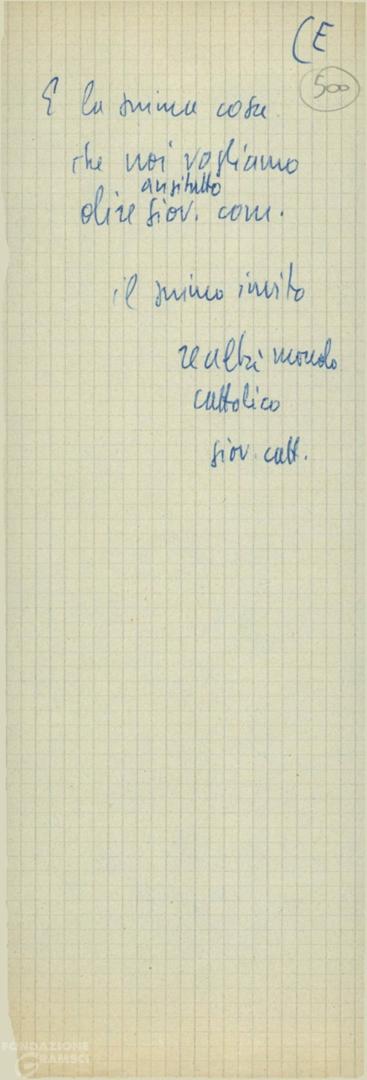 CE
500
E la prima cosa
che noi vogliamo
anzitutto
dire giov. com.
il primo invito
realtà mondo
cattolico
giov. catt.
FONDAZIONE
GRAMSCI